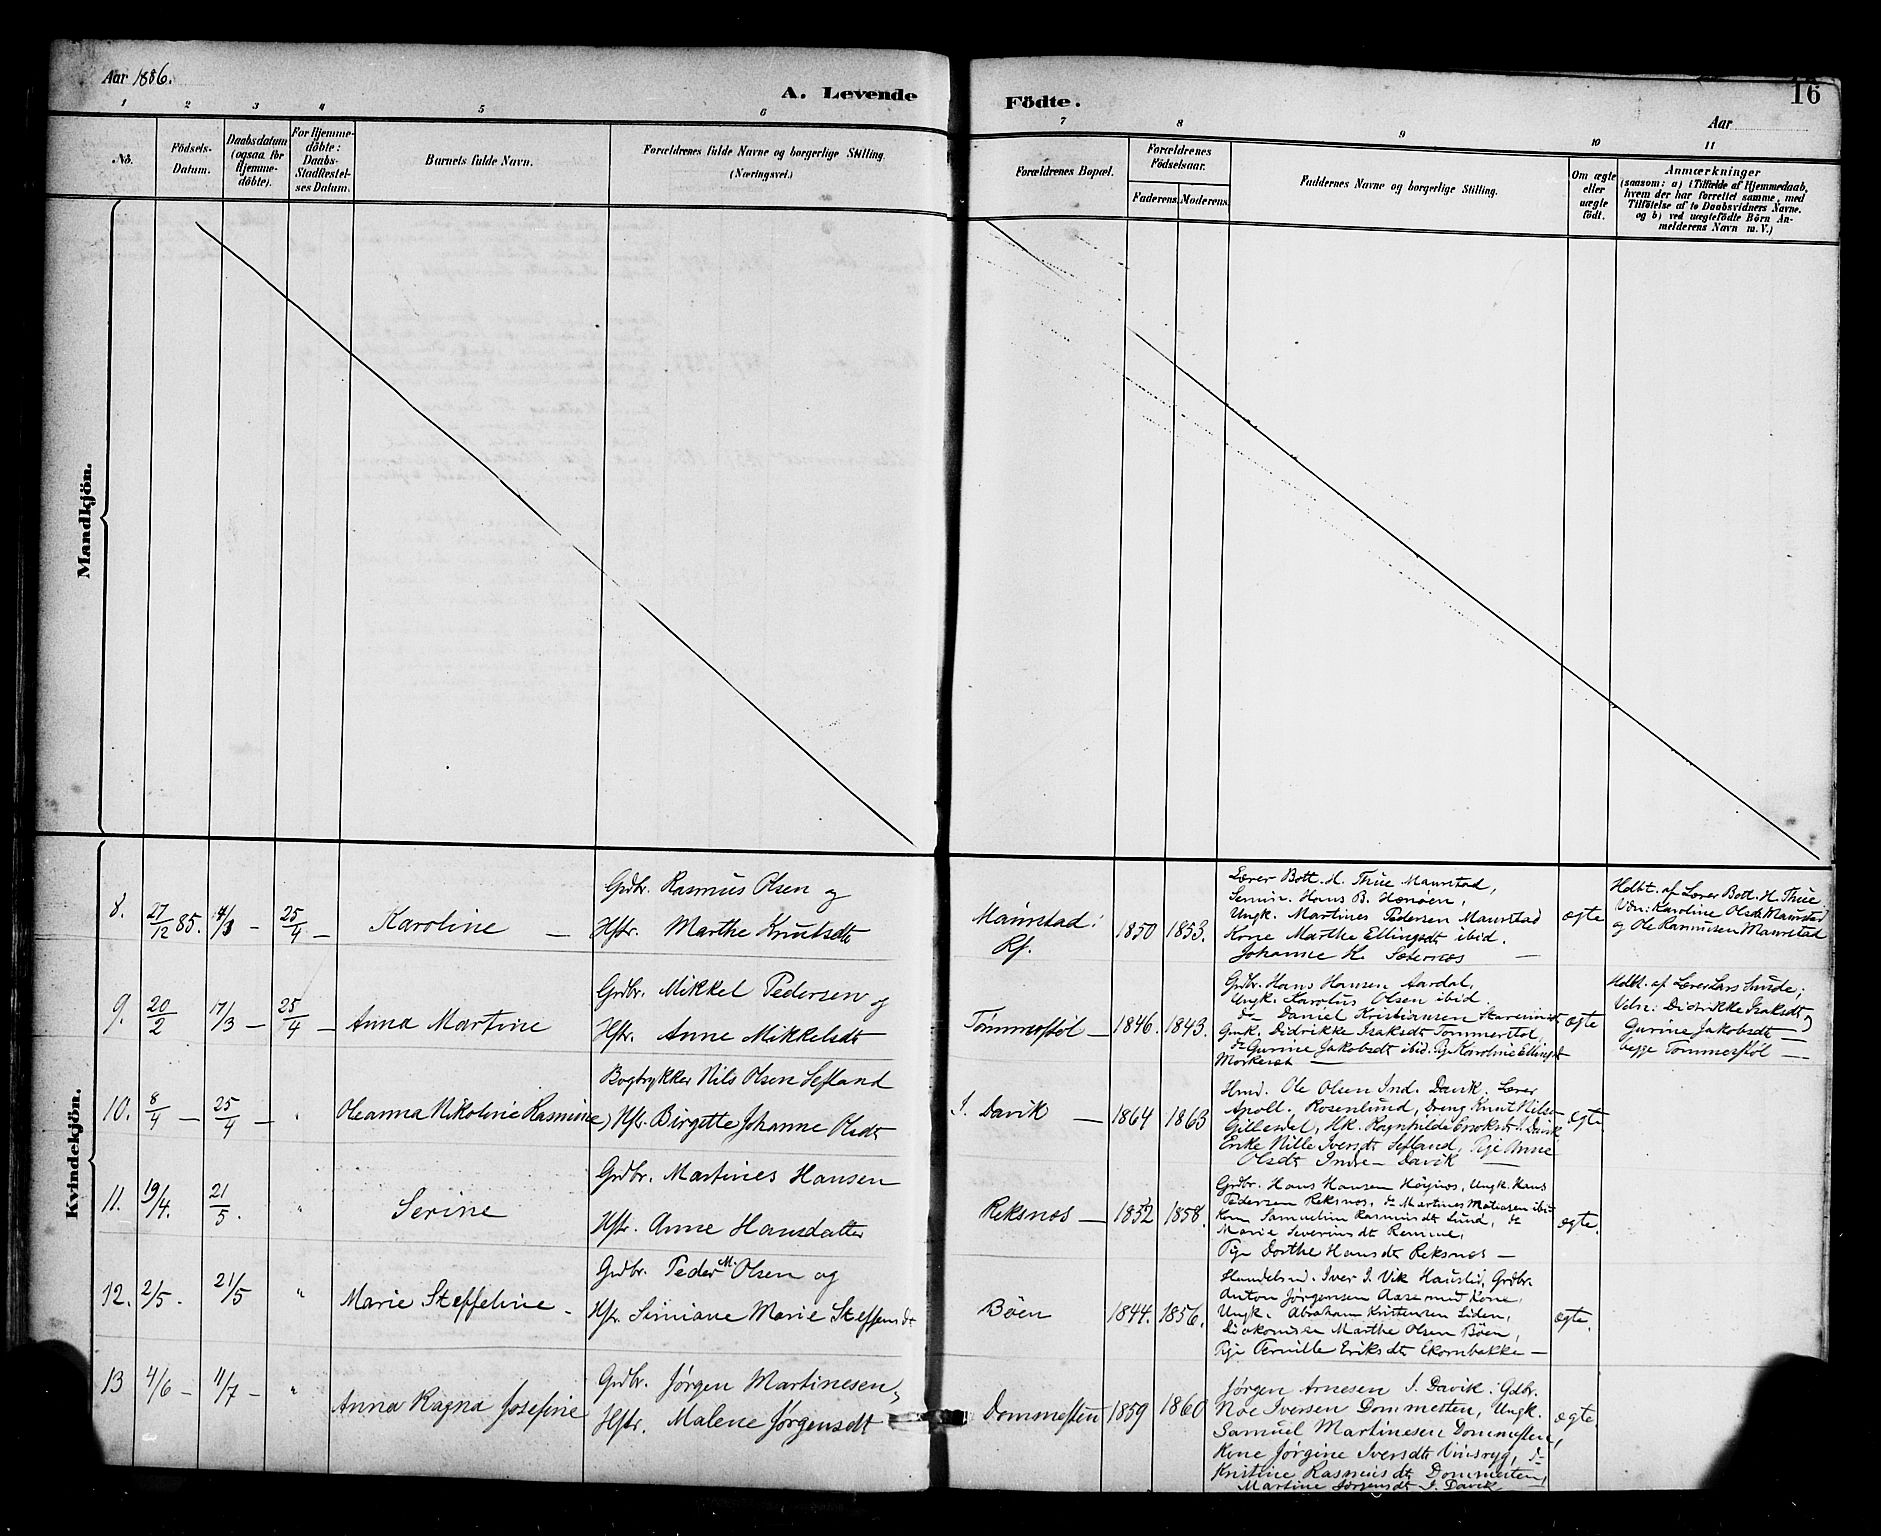 Aar 1886.
A. Levende
Födte.
16
Aar
1
2
3
4
5
6
7
8
9
10
11
No.
Födsels-
Datum.
Daabsdatum
(ogsaa for
Hjemme-
döbte).
For Hjemme-
döbte:
Daabs-
Stadfæstel-
ses Datum.
Barnets fulde Navn.
Forældrenes fulde Navne og borgerlige Stilling.
(Næringsvei.)
Forældrenes Bopæl.
Forældrenes
Födselsaar.
Faderens.
Moderens.
Faddernes Navne og borgerlige Stilling.
Om ægte
eller
uægte
födt.
Anmærkninger
(saasom: a) i Tilfælde af Hjemmedaab,
hvem der har forrettet samme, med
Tilföielse af to Daabsvidners Navne.
og b) ved uægtefödte Börn An-
melderens Navn m. V.)
Mandkjön.
Kvindekjön.
8. 27/12 85. 14/3 - 25/4 -
Karoline -
Grdbr. Rasmus Olsen og
Hstr. Marthe Knutsdt
Maurstad i
Rf.
1850 1853.
Lærer Bott. H. Thue Maurstad,
Semin. Hans B. Henøen,
Ungk. Martines Pedersen Maurstad
Kone Marthe Ellingsdt ibid.
Johanne H. Sæternes -
ægte
Hdbt. af Lærer Bott. H. Thue
Vdn: Karoline Olsdt Maurstad
og Ole Rasmusen Maurstad
9. 20/2 17/3 - 25/4 -
Anna Martine
Grdbr. Mikkel Pedersen og
Hstr. Anne Mikkelsdt
Tømmerstøl -
1846. 1843.
Grdbr. Hans Hansen Aardal,
Ungk. Karolus Olsen ibid
do Daniel Kristiansen
Gmk. Didrikke Isaksdt Tømmerstøl,
do Gurine Jakobsdt ibid. Pg Karoline Ellingsdt
Morkeset -
ægte
Hdbt. af Lærer Lars Sunde;
Vdn: Didrikke Isaksdt,
Gurine Jakobsdt -
begge Tømmerstøl -
10. 8/4 - 25/4 - "
Oleanna Nikoline Rasmine
Bogtrykker Nils Olsen Sefland
Hstr. Birgitte Johanne Olsdt
I. Davik -
1864 1863
Hmd. Ole Olsen Ind. Davik. Lærer
Apoll. Rosenlund, Dreng Knut Nilse
Gillesdel, Hk. Ragnhilde I. Davik
Enke Nille Iversdt Sefland, Pige Anne
Olsdt Indre-Davik -
ægte.
11. 19/4. 21/5. "
Serine
Grdbr. Martines Hansen
Hstr. Anne Hansdatter
Reksnes -
1852 1858.
Grdbr. Hans Hansen Høynes, Ungk. Hans
Pedersen Reksnes, do Martines Matiasen ibid
Kone Samueline Rasmusdt Lund, do
Marie Severinsdt Remme,
Pige Dorthe Hansdt Reksnes -
ægte.
12. 2/5. 21/5 "
Marie Steffeline -
Grdbr. Peder M. Olsen og
Hstr. Simiane Marie Steffensdt
Böen
1844. 1856.
Handelsmd. Iver I. Vik Hauslid, Grdbr.
Anton Jørgensen Aase med Kone,
Ungk. Abraham Kristensen Liden,
Marthe Olsen Böen,
Pige Pernille Eriksdt Ekornbakke -
ægte.
13 4/6 - 11/7 - "
Anna Ragna Josefine
Grdbr. Jørgen Martinesen,
Hstr. Malene Jørgensdt
Dommesten
1859 1860
Jørgen Arnesen I. Davik. Gdbr.
Noe Iversen Dommesten, Ungk.
Samuel Martinesen Dommesten,
Kone Jørgine Iversdt Vinsryg, do
Kristine Rasmusdt Dommesten,
Martine Jørgensdt I. Davik
ægte.